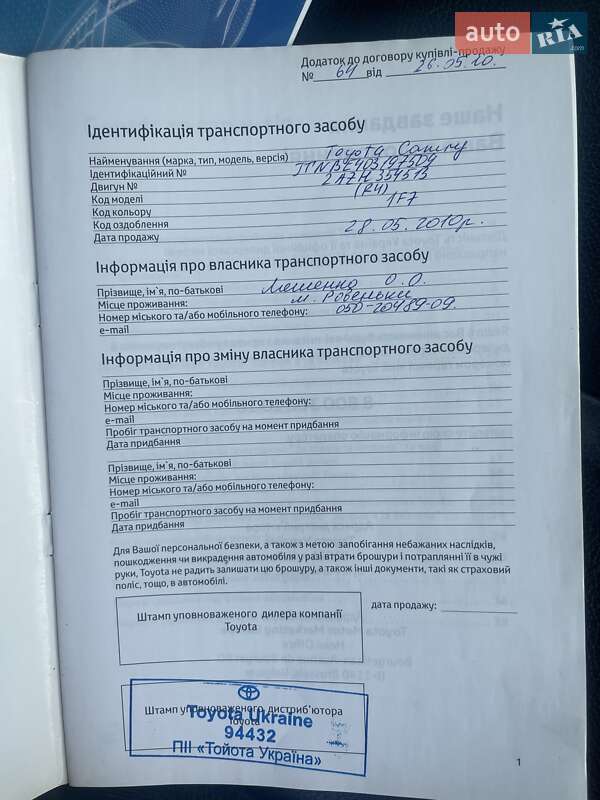 auto RIA.com
Додаток до договору купівлі-продажу
№ 64 від 26.05.10.
Ідентифікація транспортного засобу
Найменування (марка, тип, модель, версія) Toyota Camry
Ідентифікаційний №
Двигун № 2AZH354513
Код моделі (R4)
Код кольору 1F7
Код оздоблення
Дата продажу 28.05.2010р.
Інформація про власника транспортного засобу
Прізвище, ім'я, по-батькові О.О.
Місце проживання: м. Ровеньки
Номер міського та/або мобільного телефону: 050-20489-09.
e-mail
Інформація про зміну власника транспортного засобу
Прізвище, ім'я, по-батькові
Місце проживання:
Номер міського та/або мобільного телефону:
e-mail
Пробіг транспортного засобу на момент придбання
Дата придбання
Прізвище, ім'я, по-батькові
Місце проживання:
Номер міського та/або мобільного телефону:
e-mail
Пробіг транспортного засобу на момент придбання
Дата придбання
Для Вашої персональної безпеки, а також з метою запобігання небажаних наслідків,
пошкодження чи викрадення автомобіля у разі втрати брошури і потраплянні її в чужі
руки, Toyota не радить залишати цю брошуру, а також інші документи, такі як страховий
поліс, тощо, в автомобілі.
Штамп уповноваженого дилера компанії
Toyota
дата продажу:
Штамп уповноваженого дистриб'ютора
Toyota
Toyota Ukraine
94432
ПІІ «Тойота Україна»
1